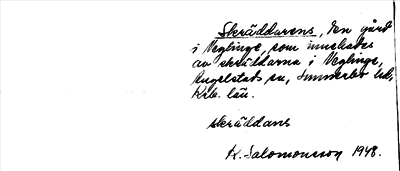 Skräddarens, den gård
i Veglinge, som innehades
av skräddarna i Veglinge,
Angelstads sn, Sunnerbo hd,
Krb. län.
skräddans
K. Salomonsson 1948.